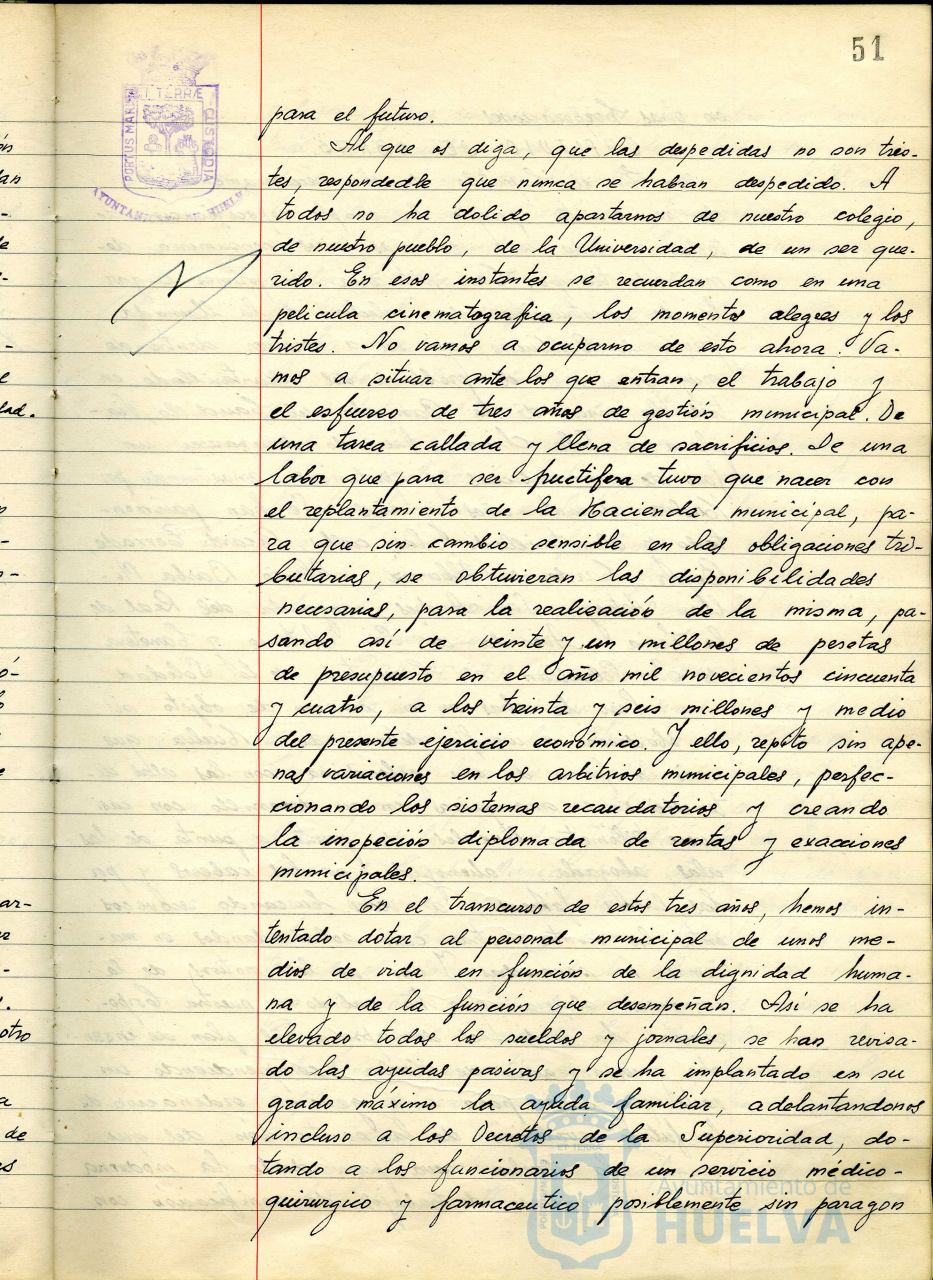 51
PORTUS MARIS
ET TERRÆ
CUSTODIA
AYUNTAMIENTO DE HUELVA
para el futuro.
Al que os diga, que las despedidas no son tris-
tes, respondedle que nunca se habran despedido. A
todos no ha dolido apartarnos de nuestro colegio,
de nuestro pueblo, de la Universidad, de un ser que-
rido. En esos instantes se recuerdan como en una
pelicula cinematografica, los momentos alegres y los
tristes. No vamos a ocuparno de esto ahora. Va-
mos a situar ante los que entran, el trabajo y
el esfuerzo de tres años de gestión municipal. De
una tarea callada y llena de sacrificios. De una
labor que para ser fructifera tuvo que nacer con
el replantamiento de la Hacienda municipal, pa-
ra que sin cambio sensible en las obligaciones tri-
butarias, se obtuvieran las disponibilidades
necesarias, para la realización de la misma, pa-
sando así de veinte y un millones de pesetas
de presupuesto en el año mil novecientos cincuenta
y cuatro, a los treinta y seis millones y medio
del presente ejercicio económico. Y ello, repito sin ape-
nas variaciones en los arbitrios municipales, perfec-
cionando los sistemas recaudatorios y creando
la inspeción diplomada de rentas y exacciones
municipales.
En el transcurso de estos tres años, hemos in-
tentado dotar al personal municipal de unos me-
dios de vida en función de la dignidad huma-
na y de la función que desempeñan. Así se ha
elevado todos los sueldos y jornales, se han revisa-
do las ayudas pasivas y se ha implantado en su
grado máximo la ayuda familiar, adelantandonos
incluso a los Decretos de la Superioridad, do-
tando a los funcionarios de un servicio médico-
quirurgico y farmaceutico posiblemente sin paragon
Ayuntamiento de
HUELVA